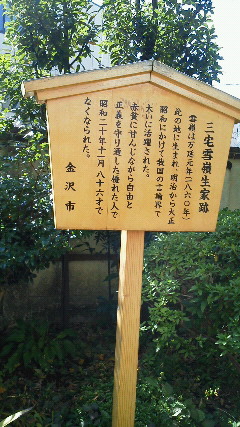 三宅雪嶺生家跡
雪嶺は万延元年(一八六〇年)
此の地に生まれ、明治から大正
昭和にかけて我国の言論界で
大いに活躍された。
赤貧に甘んじながら自由と
正義を守り通した優れた人で
昭和二十年十一月八十六才で
なくなられた。
金沢市